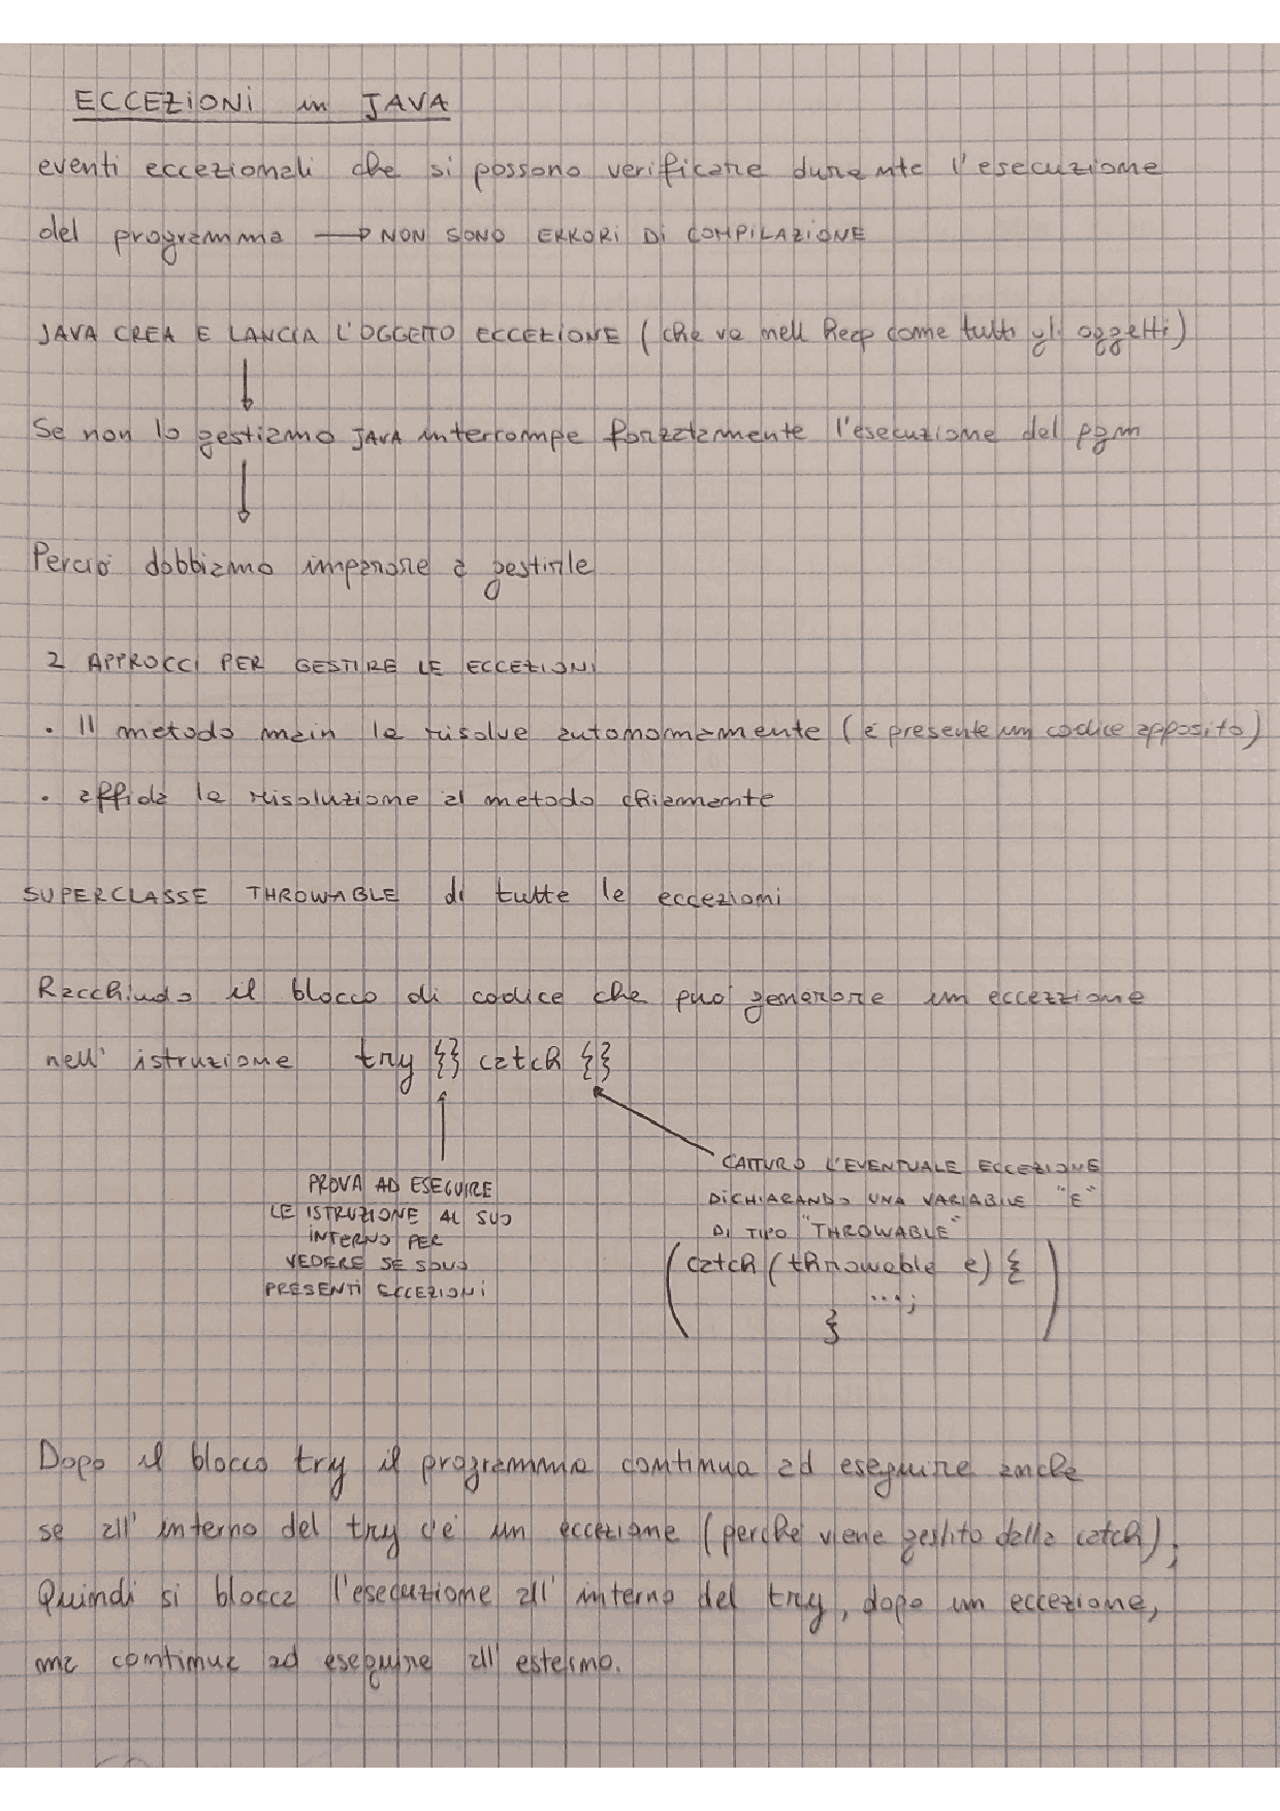 ECCEZIONI in JAVA
eventi eccezionali che si possono verificare durante l'esecuzione
del programma → NON SONO ERRORI DI COMPILAZIONE
JAVA CREA E LANCIA L'OGGETTO ECCEZIONE (che va nell heap come tutti gli oggetti)
Se non lo gestiamo JAVA interrompe forzatamente l'esecuzione del pgm
Perciò dobbiamo imparare a gestirle
2 APPROCCI PER GESTIRE LE ECCEZIONI
• Il metodo main la risolve autonomamente (è presente un codice apposito)
• affida la risoluzione al metodo chiamante
SUPERCLASSE THROWABLE di tutte le eccezioni
Racchiudo il blocco di codice che può generare un eccezzione
nell' istruzione try {} catch {}
PROVA AD ESEGUIRE
LE ISTRUZIONE AL SUO
INTERNO PER
VEDERE SE SONO
PRESENTI ECCEZIONI
CATTURO L'EVENTUALE ECCEZIONE
DICHIARANDO UNA VARIABILE "E"
DI TIPO "THROWABLE"
(catch (throwable e) {
...;
})
Dopo il blocco try il programma continua ad eseguire anche
se all' interno del try c'è un eccezione (perchè viene gestito dalla catch);
Quindi si blocca l'esecuzione all' interno del try, dopo un eccezione,
ma continua ad eseguire all' esterno.